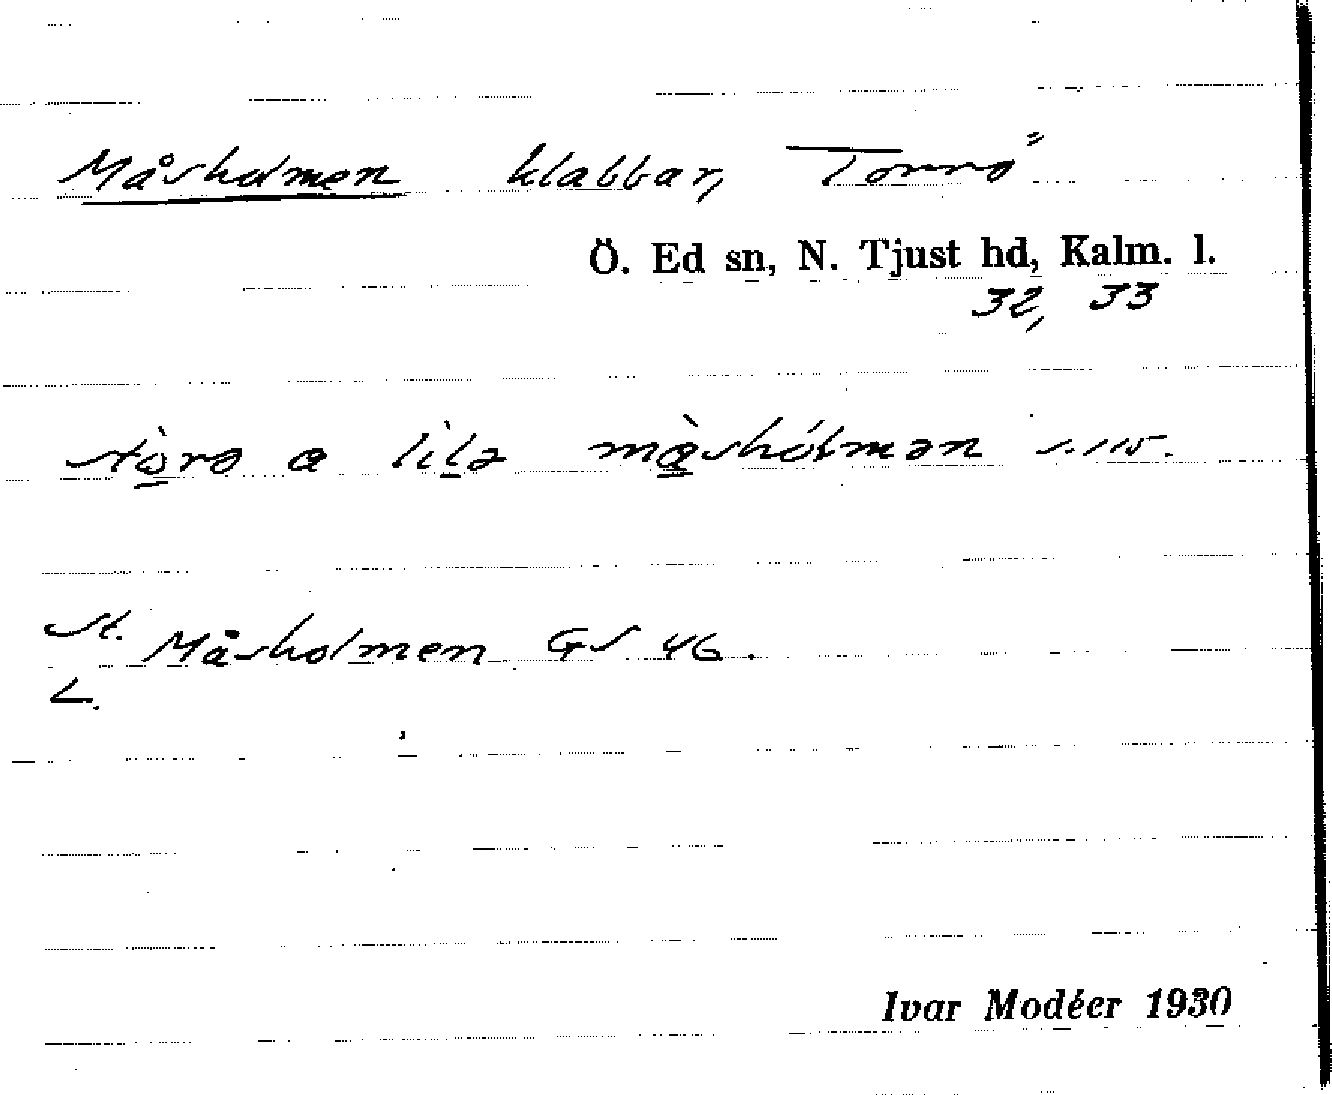 Måsholmen klabbar, Torrö
Ö. Ed sn, N. Tjust hd, Kalm. l.
32, 33
stòra a lìla mằshólmən s. 115.
St.
Måsholmen GS 46.
L.
Ivar Modéer 1930